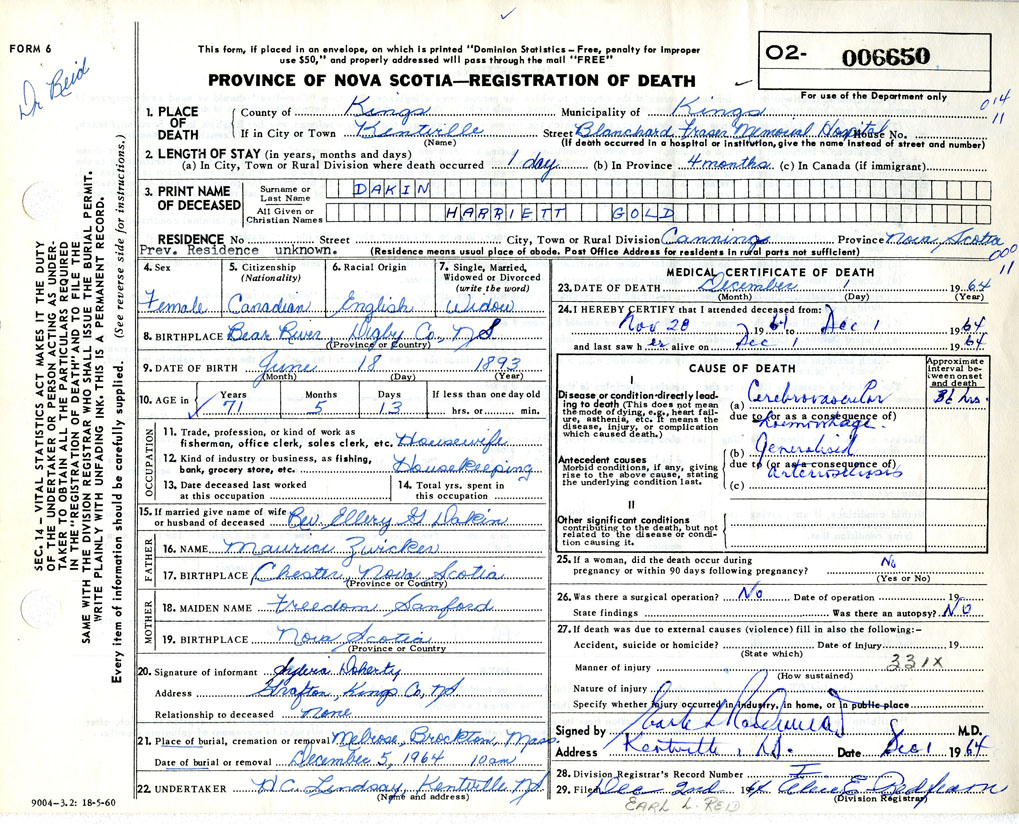 FORM 6
Dr Reid
This form, if placed in an envelope, on which is printed "Dominion Statistics – Free, penalty for improper
use $50," and properly addressed will pass through the mail "FREE"
PROVINCE OF NOVA SCOTIA—REGISTRATION OF DEATH
O2- 006650
For use of the Department only
014
11
1. PLACE OF DEATH
County of Kings Municipality of Kings
If in City or Town Kentville Street Blanchard Fraser Memorial Hospital House No.
(Name) (If death occurred in a hospital or institution, give the name instead of street and number)
2. LENGTH OF STAY (in years, months and days)
(a) In City, Town or Rural Division where death occurred 1 day (b) In Province 4 months (c) In Canada (if immigrant)
3. PRINT NAME OF DECEASED
Surname or Last Name DAKIN
All Given or Christian Names HARRIETT GOLD
RESIDENCE No Street City, Town or Rural Division Canning Province Nova Scotia
Prev. Residence unknown. (Residence means usual place of abode. Post Office Address for residents in rural parts not sufficient)
000
11
4. Sex Female
5. Citizenship (Nationality) Canadian
6. Racial Origin English
7. Single, Married, Widowed or Divorced (write the word) Widow
8. BIRTHPLACE Bear River Digby Co, NS
(Province or Country)
9. DATE OF BIRTH June 18 1893
(Month) (Day) (Year)
10. AGE in Years Months Days If less than one day old
71 5 13 hrs. or min.
OCCUPATION
11. Trade, profession, or kind of work as
fisherman, office clerk, sales clerk, etc. Housewife
12. Kind of industry or business, as fishing,
bank, grocery store, etc. Housekeeping
13. Date deceased last worked at this occupation
14. Total yrs. spent in this occupation
15. If married give name of wife
or husband of deceased Rev. Ellery G Dakin
FATHER
16. NAME Maurice Zwicker
17. BIRTHPLACE Chester, Nova Scotia
(Province or Country)
MOTHER
18. MAIDEN NAME Freedom Sanford
19. BIRTHPLACE Nova Scotia
(Province or Country
20. Signature of informant Sylvia Doherty
Address Grafton, Kings Co, NS
Relationship to deceased none
21. Place of burial, cremation or removal Melrose, Brockton, Mass.
Date of burial or removal December 5, 1964 10 am
22. UNDERTAKER W.C. Lindsay, Kentville NS
(Name and address)
9004-3.2: 18-5-60
MEDICAL CERTIFICATE OF DEATH
23. DATE OF DEATH December 1 1964
(Month) (Day) (Year)
24. I HEREBY CERTIFY that I attended deceased from:
Nov 28 1964 to Dec 1 1964
and last saw her alive on Dec 1 1964
CAUSE OF DEATH
Approximate interval between onset and death
I
Disease or condition directly leading to death (This does not mean the mode of dying, e.g., heart failure, asthenia, etc. It means the disease, injury, or complication which caused death.)
(a) Cerebrovascular 36 hrs.
due to (or as a consequence of)
haemorrhage.
Antecedent causes
Morbid conditions, if any, giving rise to the above cause, stating the underlying condition last.
(b) Generalised
due to (or as a consequence of)
arteriosclerosis
(c)
II
Other significant conditions
contributing to the death, but not related to the disease or condition causing it.
25. If a woman, did the death occur during
pregnancy or within 90 days following pregnancy? No
(Yes or No)
26. Was there a surgical operation? No Date of operation 19
State findings Was there an autopsy? No
27. If death was due to external causes (violence) fill in also the following:–
Accident, suicide or homicide? Date of injury 19
(State which)
331X
Manner of injury
(How sustained)
Nature of injury
Specify whether injury occurred in industry, in home, or in public place
Signed by M.D.
Address Kentville, N.S. Date Dec 1 1964
28. Division Registrar's Record Number
29. Filed Dec 2nd 1964
(Division Registrar)
EARL L. REID
SEC. 14 – VITAL STATISTICS ACT MAKES IT THE DUTY
OF THE UNDERTAKER OR PERSON ACTING AS UNDER-
TAKER TO OBTAIN ALL THE PARTICULARS REQUIRED
IN THE "REGISTRATION OF DEATH" AND TO FILE THE
SAME WITH THE DIVISION REGISTRAR WHO SHALL ISSUE THE BURIAL PERMIT.
WRITE PLAINLY WITH UNFADING INK. THIS IS A PERMANENT RECORD.
Every item of information should be carefully supplied. (See reverse side for instructions.)